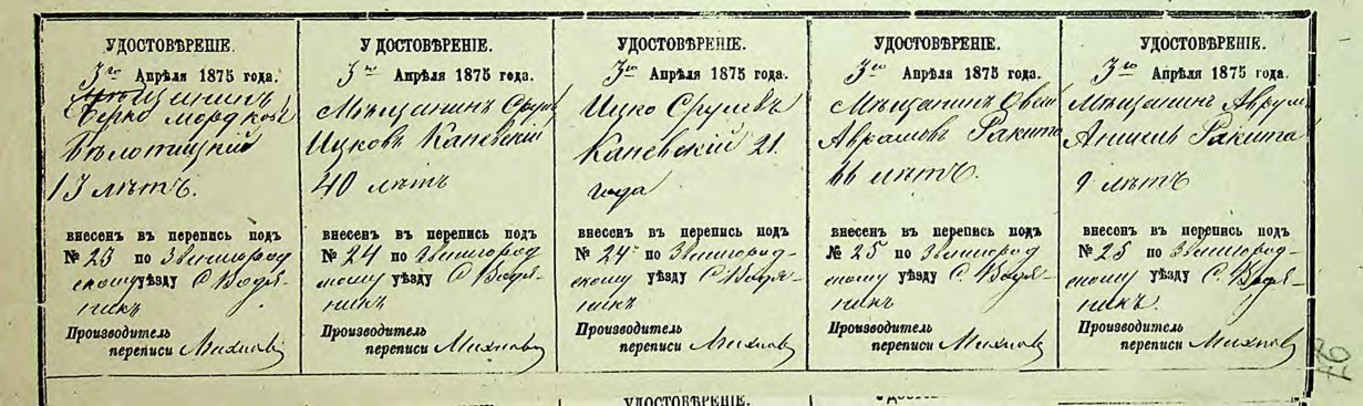 УДОСТОВѢРЕНІЕ.
3го Апрѣля 1875 года.
Мѣщанинъ
Берко Мордковъ
Бѣлотицкій
13 лѣтъ.
внесенъ въ перепись подъ
№ 23 по Звенигород
скому уѣзду С. Водя-
никъ
Производитель
переписи Михнов
УДОСТОВѢРЕНІЕ.
3го Апрѣля 1875 года.
Мѣщанинъ Сруль
Ицковъ Каневскій
40 лѣтъ
внесенъ въ перепись подъ
№ 24 по Звенигород
скому уѣзду С. Водя-
никъ
Производитель
переписи Михнов
УДОСТОВѢРЕНІЕ.
3го Апрѣля 1875 года.
Ицко Срулевъ
Каневскій 21.
года
внесенъ въ перепись подъ
№ 24 по Звенигород-
скому уѣзду С. Водя-
никъ
Производитель
переписи Михнов
УДОСТОВѢРЕНІЕ.
3го Апрѣля 1875 года.
Мѣщанинъ Овсій
Аврамовъ Ракита
66 лѣтъ.
внесенъ въ перепись подъ
№ 25 по Звенигород
скому уѣзду С. Водя-
никъ
Производитель
переписи Михнов
УДОСТОВѢРЕНІЕ.
3го Апрѣля 1875 года.
Мѣщанинъ Аврум
Ракита
9 лѣтъ
внесенъ въ перепись подъ
№ 25 по Звенигород-
скому уѣзду С. Водя-
никъ.
Производитель
переписи Михнов
УДОСТОВѢРЕНІЕ.